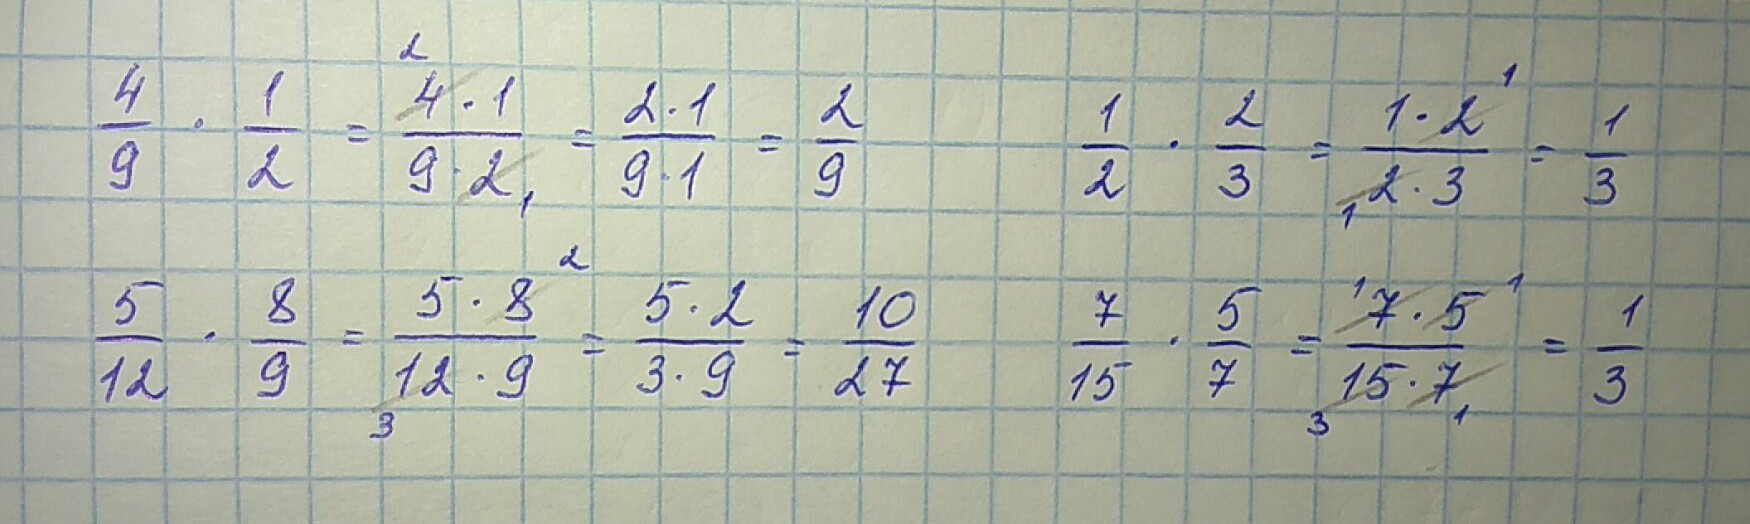 4/9 · 1/2 = 4·1/9·2 = 2·1/9·1 = 2/9   1/2 · 2/3 = 1·2/2·3 = 1/3
5/12 · 8/9 = 5·8/12·9 = 5·2/3·9 = 10/27   7/15 · 5/7 = 7·5/15·7 = 1/3